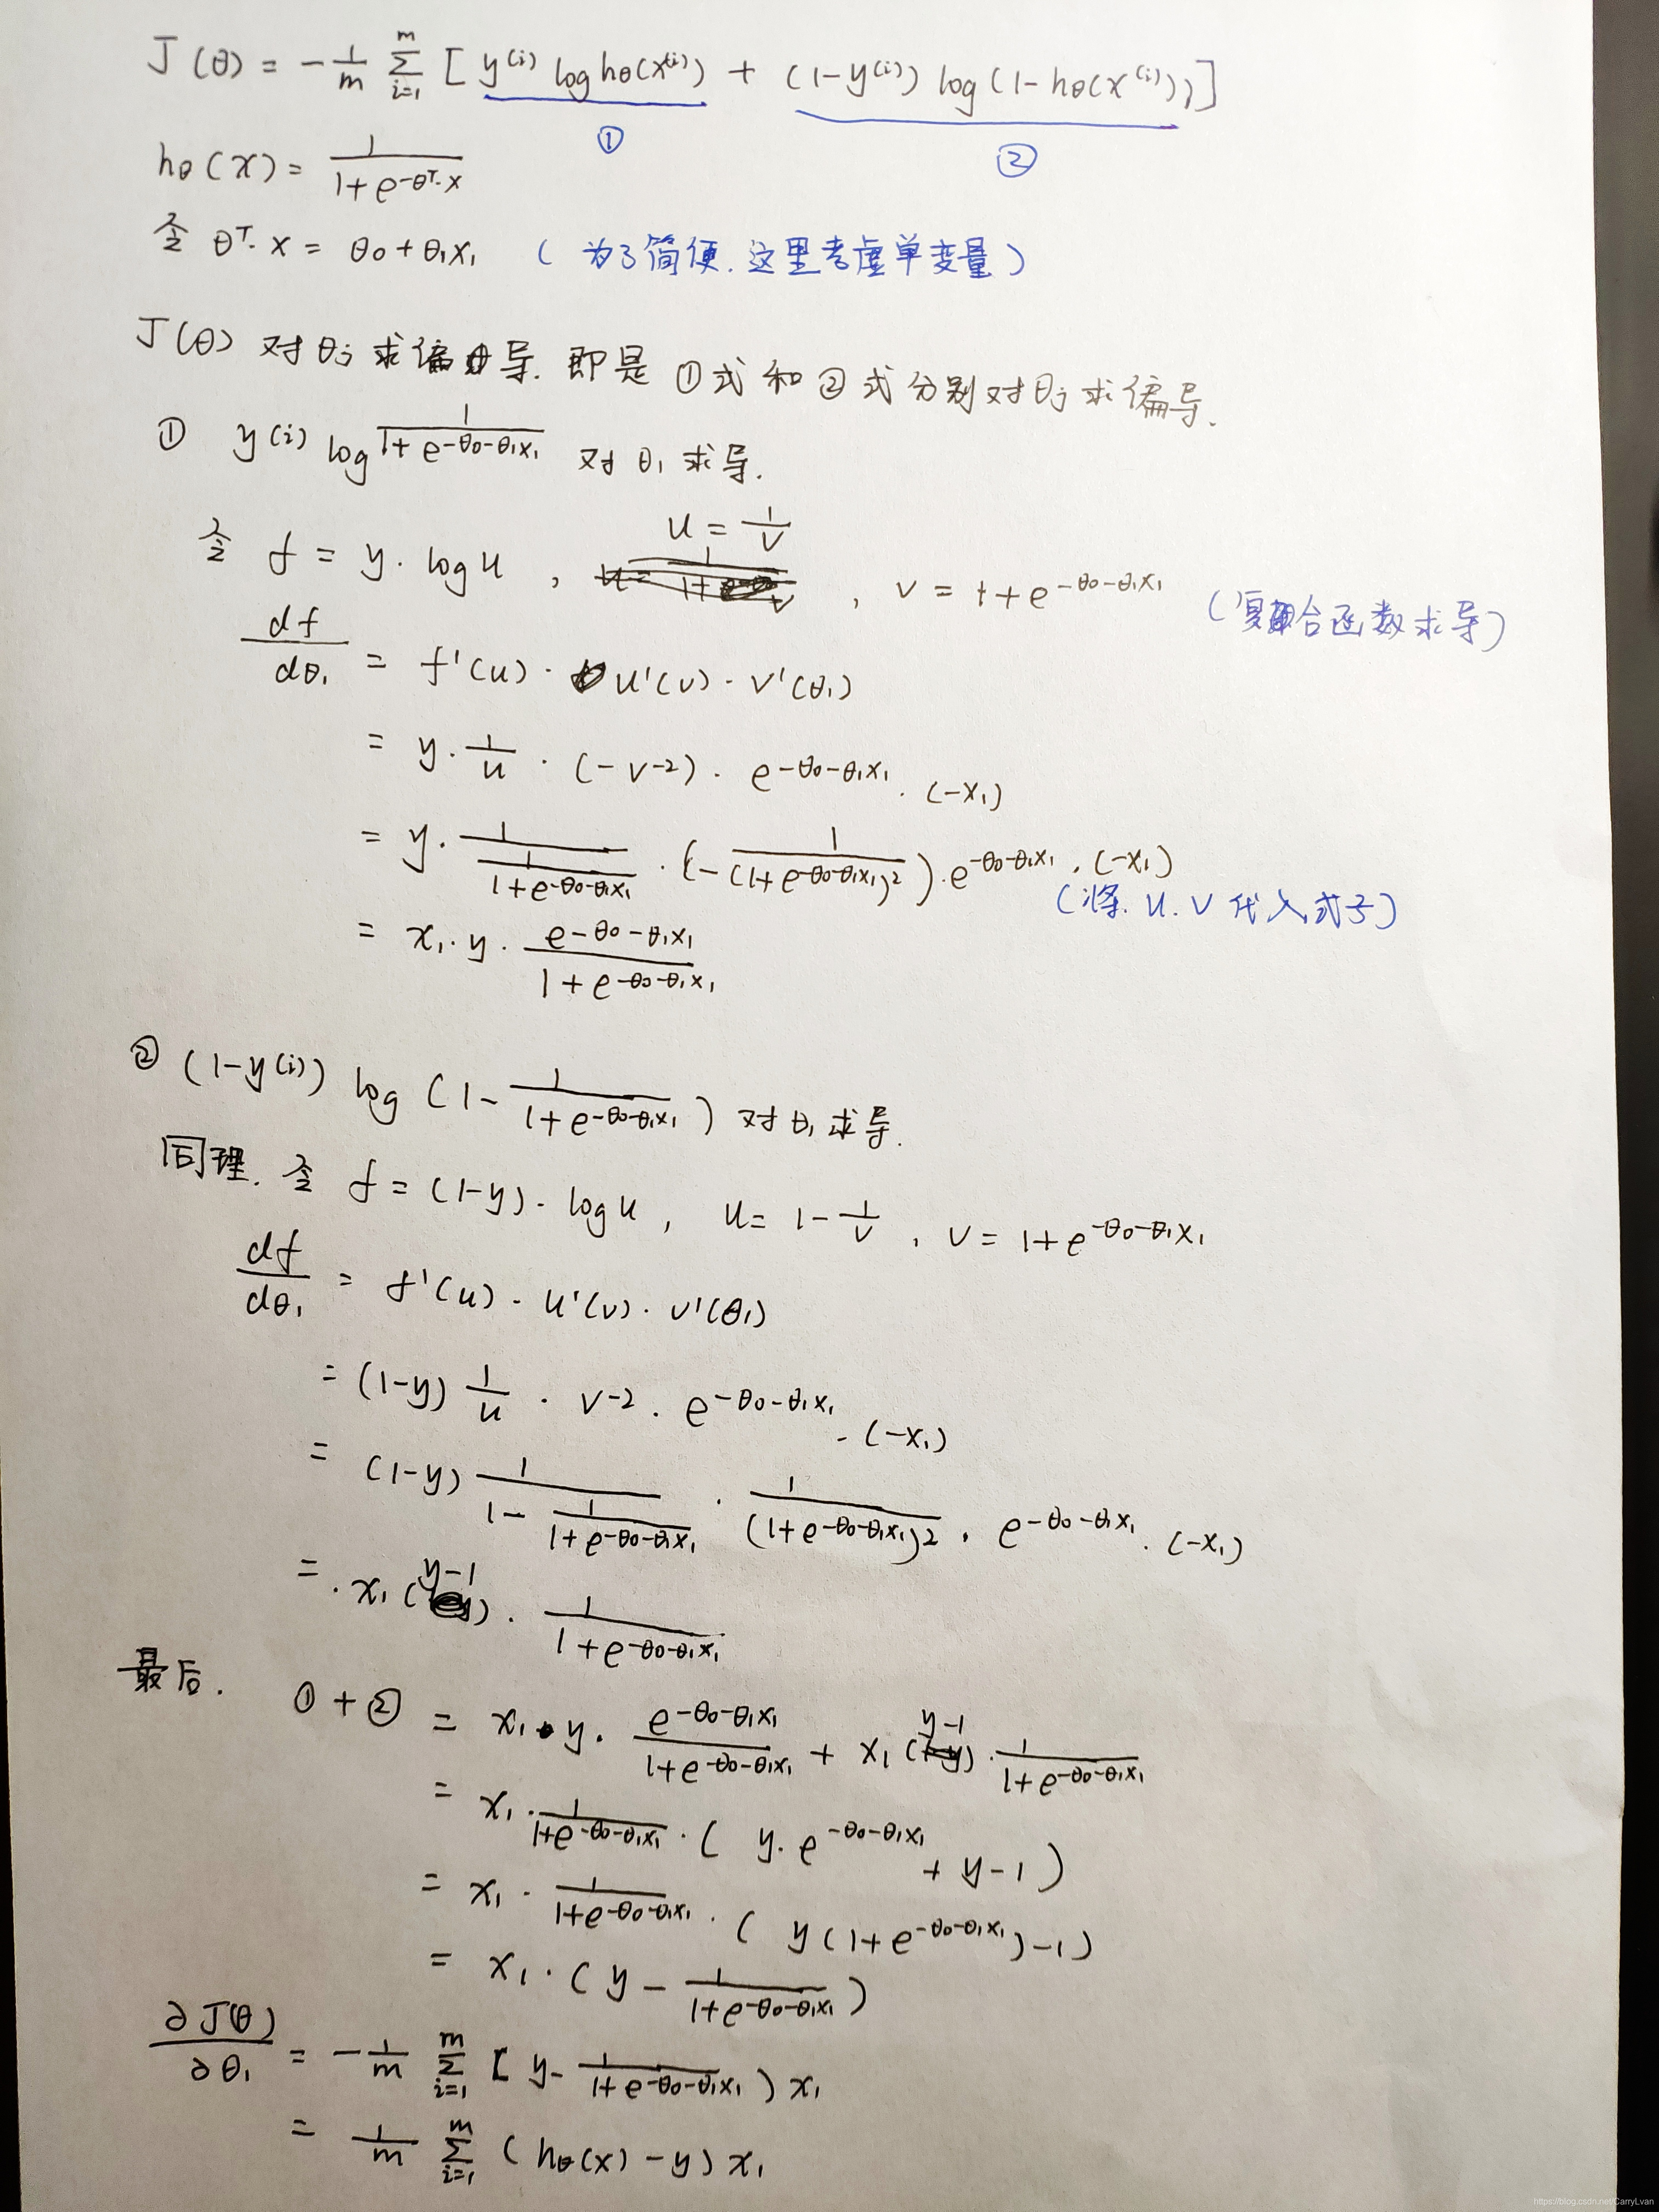 J(θ) = -1/m Σ_{i=1}^{m} [ y^(i) log hθ(x^(i)) + (1-y^(i)) log(1-hθ(x^(i))) ]
① ②
hθ(x) = 1/(1+e^{-θ^T·x})
令 θ^T·x = θ0+θ1x1 (为了简便.这里考虑单变量)
J(θ) 对θj求偏导.即是①式和②式分别对θj求偏导.
① y^(i) log 1/(1+e^{-θ0-θ1x1}) 对θ1求导.
令 f = y·log u , u = 1/v , v = 1+e^{-θ0-θ1x1} (复合函数求导)
df/dθ1 = f'(u)·u'(v)·v'(θ1)
= y·1/u·(-v^{-2})·e^{-θ0-θ1x1}·(-x1)
= y·1/(1/(1+e^{-θ0-θ1x1}))·(-1/(1+e^{-θ0-θ1x1})^2)·e^{-θ0-θ1x1}·(-x1)
(将.u.v代入式子)
= x1·y·e^{-θ0-θ1x1}/(1+e^{-θ0-θ1x1})
② (1-y^(i)) log(1-1/(1+e^{-θ0-θ1x1})) 对θ1求导.
同理.令 f=(1-y)·log u , u= 1-1/v , v= 1+e^{-θ0-θ1x1}
df/dθ1 = f'(u)·u'(v)·v'(θ1)
= (1-y) 1/u · v^{-2}·e^{-θ0-θ1x1}·(-x1)
= (1-y) 1/(1-1/(1+e^{-θ0-θ1x1})) · 1/(1+e^{-θ0-θ1x1})^2 · e^{-θ0-θ1x1}·(-x1)
= ·x1(y-1)·1/(1+e^{-θ0-θ1x1})
最后. ①+② = x1·y·e^{-θ0-θ1x1}/(1+e^{-θ0-θ1x1}) + x1(y-1)·1/(1+e^{-θ0-θ1x1})
= x1·1/(1+e^{-θ0-θ1x1})·( y·e^{-θ0-θ1x1} + y-1 )
= x1·1/(1+e^{-θ0-θ1x1})·( y(1+e^{-θ0-θ1x1})-1)
= x1·(y-1/(1+e^{-θ0-θ1x1}))
∂J(θ)/∂θ1 = -1/m Σ_{i=1}^{m} [ y-1/(1+e^{-θ0-θ1x1}) ) x1
= 1/m Σ_{i=1}^{m} (hθ(x)-y) x1
https://blog.csdn.net/CarryLvan